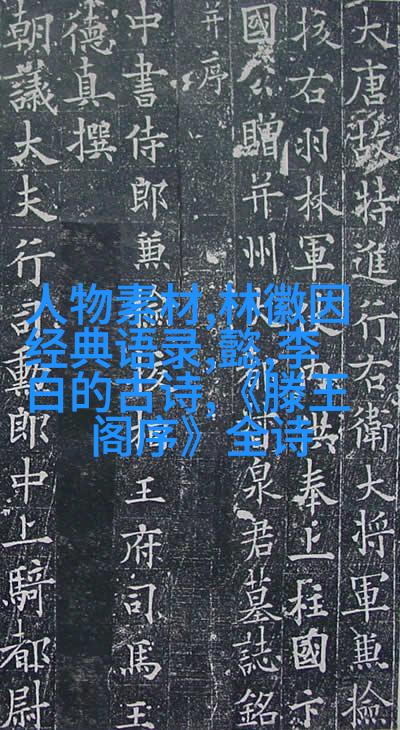 人物素材,林徽因
经典语录,懿,李
白的古诗,《滕王
阁序》全诗
大唐故特進行右衛大將軍兼撿
挍右羽林軍內供奉上柱國卞
國公贈并州都泉君墓誌銘
并序
中書侍郎兼王府司馬王
德真撰
朝議大夫行司勳郎中上騎都尉